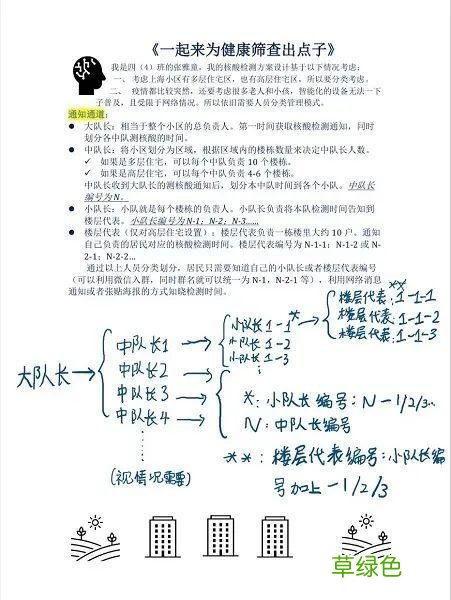 《一起来为健康筛查出点子》
我是四（4）班的张雅童，我的核酸检测方案设计基于以下情况考虑：
一、 考虑上海小区有多层住宅区，也有高层住宅区，所以要分类考虑。
二、 疫情都比较突然，还要考虑很多老人和小孩，智能化的设备无法一下
子普及，且受限于网络情况。所以依旧需要人员分类管理模式。
通知通道：
● 大队长：相当于整个小区的总负责人。第一时间获取核酸检测通知，同时
划分各中队测核酸的时间。
● 中队长：将小区划分为区域，根据区域内的楼栋数量来决定中队长人数。
✓ 如果是多层住宅，可以每个中队负责 10 个楼栋。
✓ 如果是高层住宅，可以每个中队负责 4-6 个楼栋。
中队长收到大队长的测核酸通知后，划分本中队时间到各个小队。中队长
编号为 N。
● 小队长：小队就是每个楼栋的负责人。小队长负责将本队检测时间告知到
楼层代表。小队长编号为 N-1；N-2；N-3……
● 楼层代表（仅对高层住宅设置）：楼层代表负责一栋楼里大约 10 户。通知
自己负责的居民对应的核酸检测时间。楼层代表编号为 N-1-1；N-1-2 或 N-
2-1；N-2-2…
通过以上人员分类划分，居民只需要知道自己的小队长或者楼层代表编号
（可以利用微信入群，同时群名就可以统一为 N-1，N-2-1 等），利用网络消息
通知或者张贴海报的方式知晓检测时间。
**
楼层代表：1-1-1
楼层代表：1-1-2
楼层代表：1-1-3
小队长 1-1 *
小队长 1-2
小队长 1-3
大队长
中队长1
中队长2
中队长3
中队长4
（视情况需要）
*：小队长编号：N-1/2/3…
N：中队长编号
**：楼层代表编号：小队长编
号加上-1/2/3
草绿色